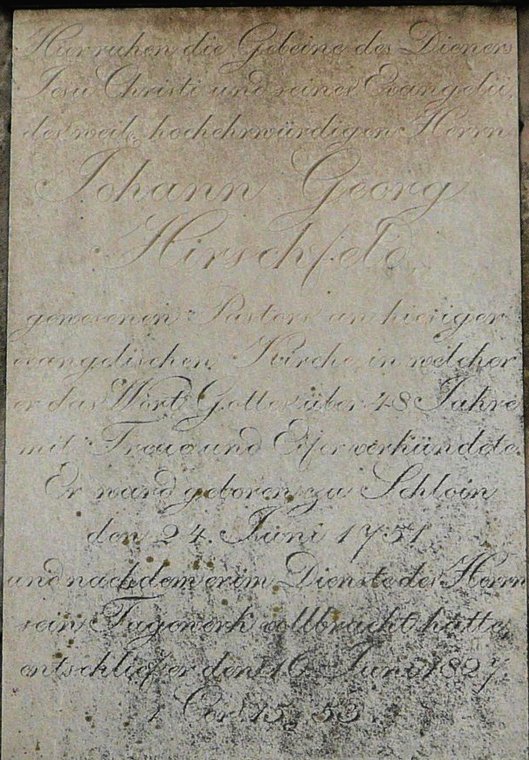 Hier ruhen die Gebeine des Dieners
Jesu Christi und seines Evangelii
des weil. hochehrwürdigen Herrn
Johann Georg
Hirschfeld
gewesenen Pastors an hiesiger
evangelischen Kirche in welcher
er das Wort Gottes über 48 Jahre
mit Treue und Eifer verkündete.
Er ward geboren zu
den 24. Juni 1751
und nachdem er im Dienste des Herrn
sein Tagewerk vollbracht hatte,
entschlief er den 16. Juni 1827.
1 Cor. 15, 53.